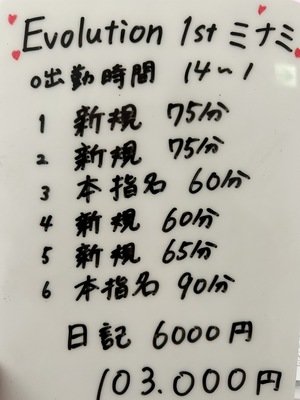 Evolution 1st ミナミ
○出勤時間 14〜1
1 新規 75分
2 新規 75分
3 本指名 60分
4 新規 60分
5 新規 65分
6 本指名 90分
日記 6000円
103.000円